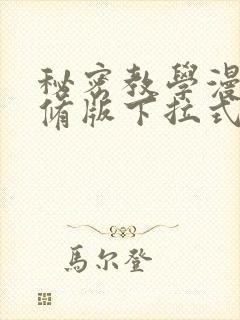 秘密教學漫
脩版下拉式
馬尔登